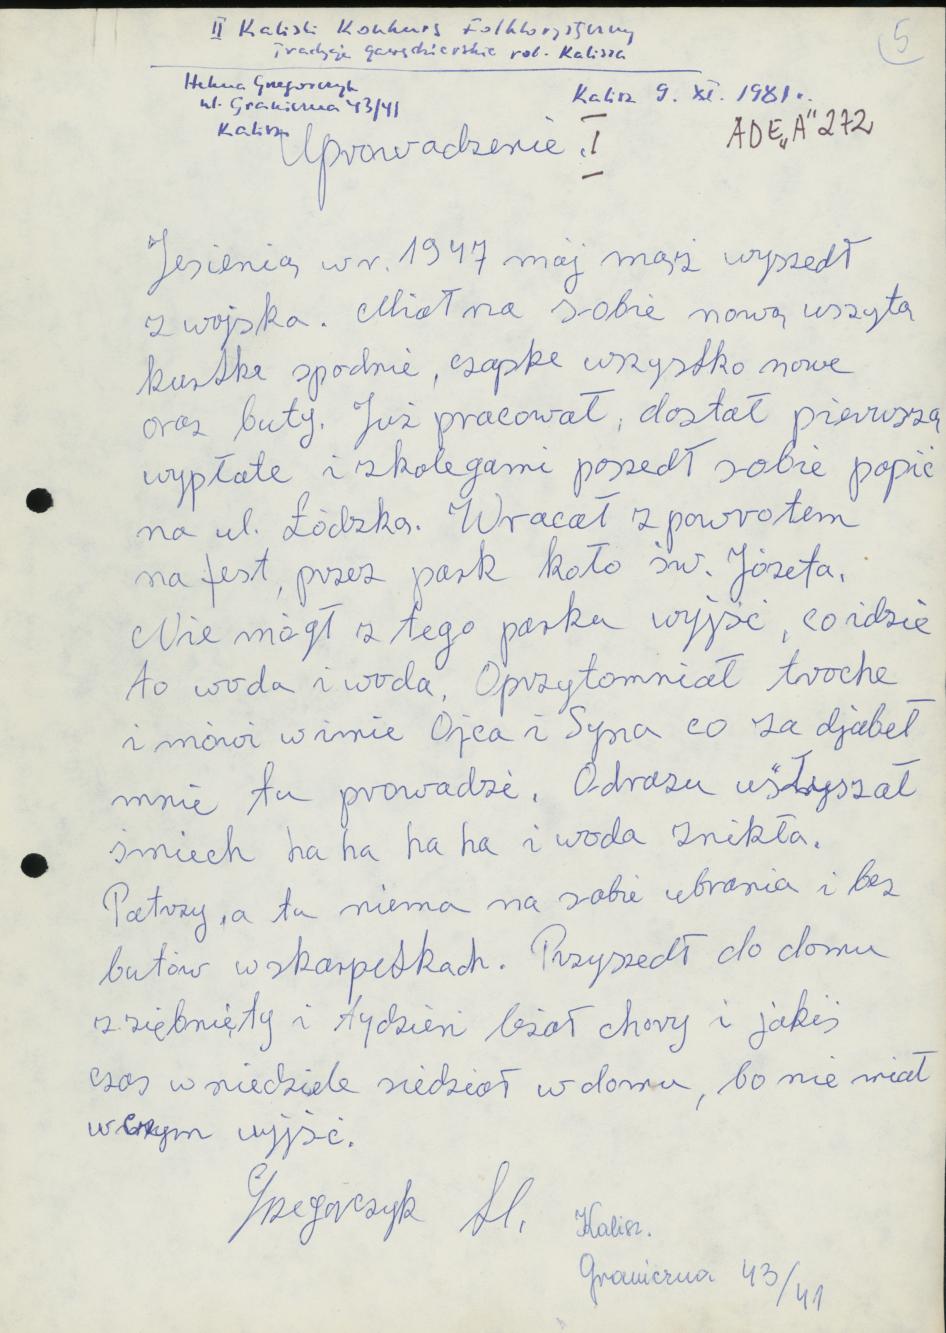 II Kaliski Konkurs Folklorystyczny
Tradycje gawędziarskie rob. Kalisza
5
Helena Grzegorczyk
ul. Graniczna 43/41
Kalisz
Kalisz 9. XI. 1981r.
ADE „A" 272
Uprowadzenie. I
Jesienią w r. 1947 mój mąż wyszedł
z wojska. Miał na sobie nową uszytą
kurtke spodnie, czapke wszystko nowe
oraz buty. Już pracował, dostał pierwszą
wypłate i z kolegami poszedł sobie popić
na ul. Łódzką. Wracał z powrotem
na fest, przez park koło św. Józefa.
Nie mógł z tego parku wyjść, co idzie
to woda i woda. Oprzytomniał troche
i mówi w imie Ojca i Syna co za djabeł
mnie tu prowadzi. Odrazu usłyszał
śmiech ha ha ha ha i woda znikła.
Patrzy, a tu niema na sobie ubrania i bez
butów w skarpetkach. Przyszedł do domu
zziębnięty i tydzień leżał chory i jakiś
czas w niedziele siedział w domu, bo nie miał
w czym wyjść.
Grzegorczyk H.
Kalisz.
Graniczna 43/41